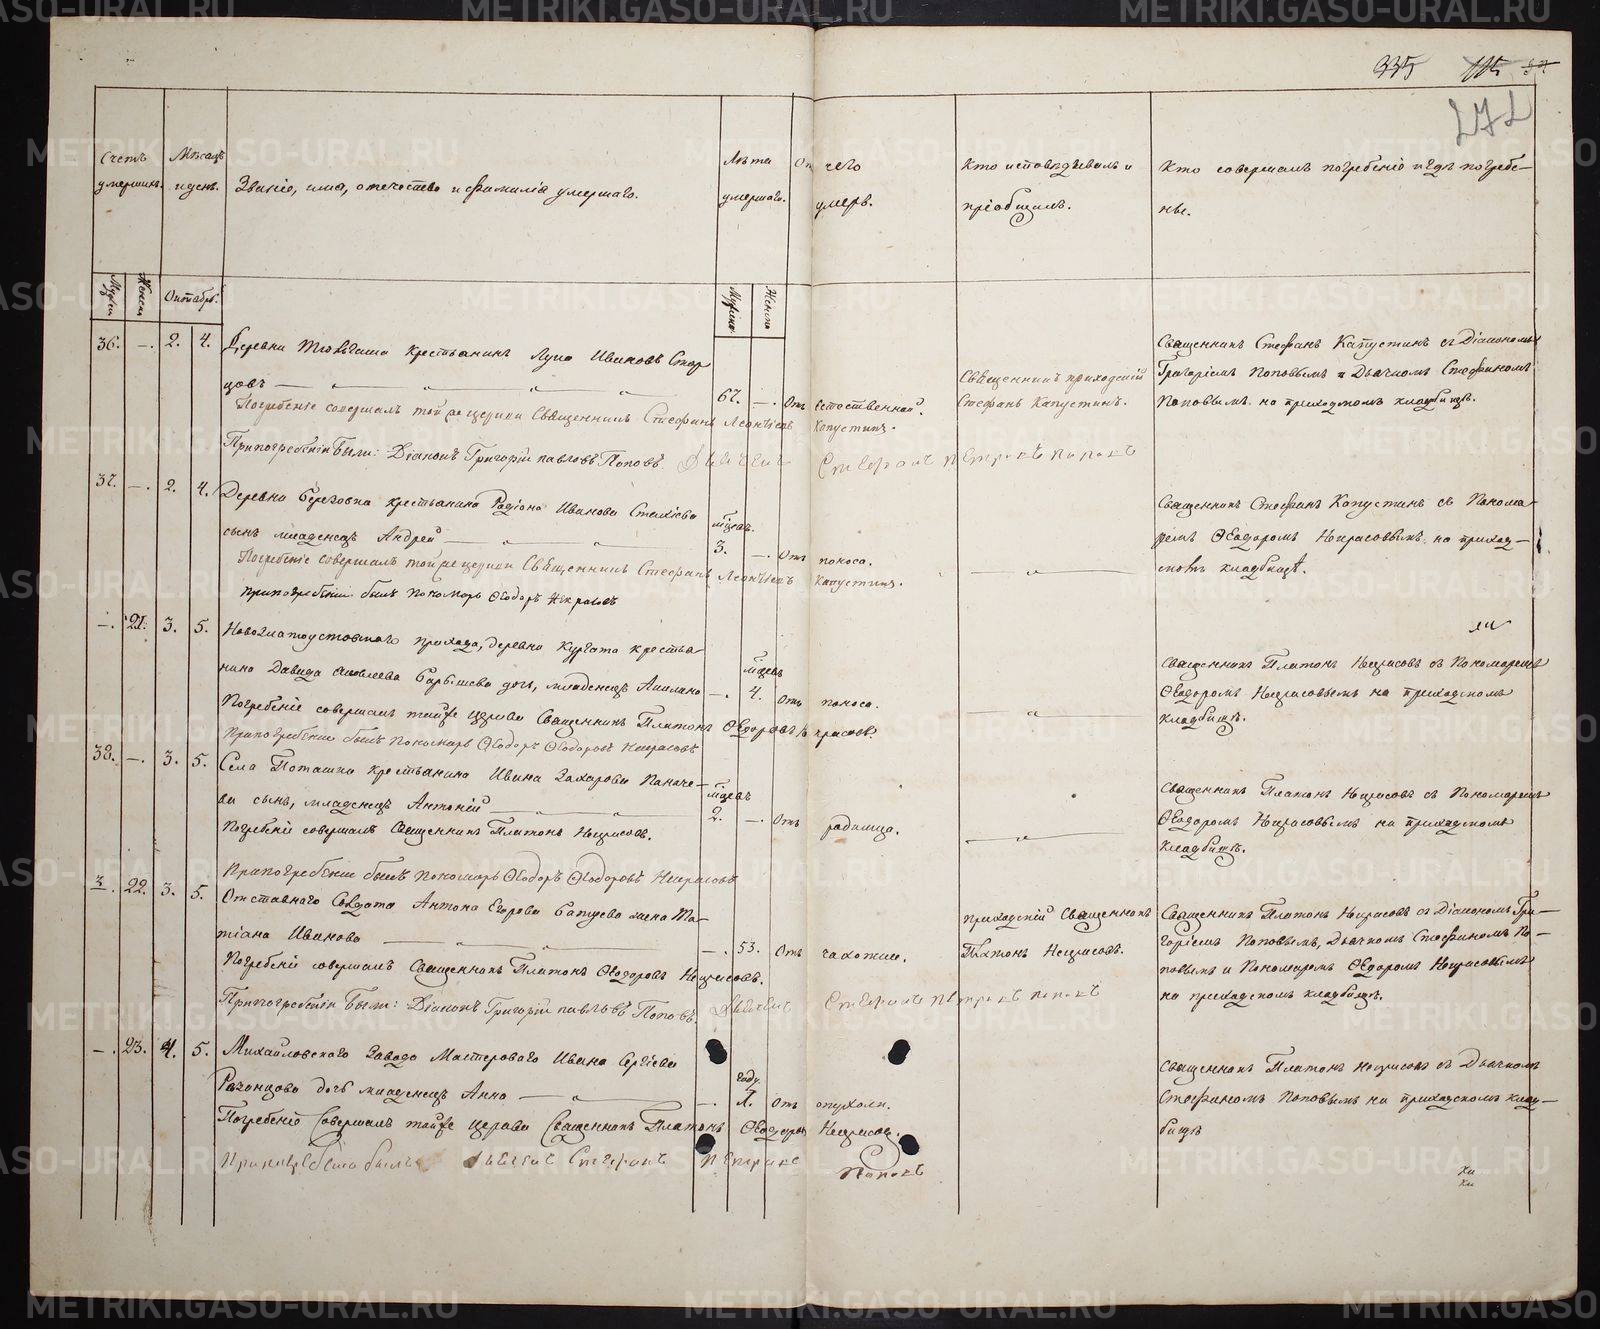 335 115
272
Счетъ умершихъ. Мѣсяцъ и день. Званіе, имя, отечество и фамилія умершаго. Лѣта умершаго. Отъ чего умеръ. Кто исповѣдывалъ и пріобщалъ. Кто совершалъ погребеніе и гдѣ погребе-
ны.
Мужеска Женска Октябрь. Мужеска Женска
36. —. 2. 4. Деревни крестьянинъ Лука Ивановъ Стар
цовъ 67. —. Отъ естественной.
Священникъ приходскій
Стефанъ Капустинъ.
Священникъ Стефанъ Капустинъ съ Діакономъ
Григоріемъ Поповымъ и Дьячкомъ Стефаномъ
Поповымъ на приходскомъ кладбищѣ.
Погребеніе совершалъ той же церкви Священникъ Стефанъ Леонтіевъ Капустинъ.
При погребеніи были: Діаконъ Григорій павловъ Поповъ. Дьячекъ Стефанъ Петровъ Поповъ
37. —. 2. 4. Деревни Березовки крестьянина Радіона Иванова Стахіева
сынъ младенецъ Андрей мѣсяцъ. 3. —. Отъ поноса.
Священникъ Стефанъ Капустинъ съ Понома-
ремъ Ѳеодоромъ Некрасовымъ на приход-
скомъ кладбищѣ.
Погребеніе совершалъ той же церкви Священникъ Стефанъ Леонтіевъ Капустинъ.
при погребеніи былъ Пономарь Ѳеодоръ Некрасовъ
—. 21. 3. 5. Новозлатоустовскаго прихода, деревни Кургата крестья-
нина Давида Яковлева Барышева дочь, младенецъ —. мѣсяцъ 4. Отъ поноса.
Священникъ Платонъ Некрасовъ съ Пономаремъ
Ѳеодоромъ Некрасовымъ на приходскомъ
кладбищѣ.
Погребеніе совершалъ той же церкви Священникъ Платонъ Ѳеодоровъ Некрасовъ.
При погребеніи былъ Пономарь Ѳеодоръ Ѳеодоровъ Некрасовъ
38. —. 3. 5. Села Поташки крестьянина Ивана Захарова Паначе-
ва сынъ, младенецъ Антоній мѣсяцъ 2. —. Отъ родимца.
Священникъ Платонъ Некрасовъ съ Пономаремъ
Ѳеодоромъ Некрасовымъ на приходскомъ
кладбищѣ.
Погребеніе совершалъ Священникъ Платонъ Некрасовъ.
При погребеніи былъ Пономарь Ѳеодоръ Ѳеодоровъ Некрасовъ
22. 3. 5. Отставнаго Солдата Антона Егорова жена Та-
тіана Иванова —. 53. Отъ чахотки.
приходскій Священникъ
Платонъ Некрасовъ.
Священникъ Платонъ Некрасовъ съ Діакономъ Гри-
горіемъ Поповымъ, Дьячкомъ Стефаномъ По-
повымъ и Пономаремъ Ѳеодоромъ Некрасовымъ
на приходскомъ кладбищѣ.
Погребеніе совершалъ Священникъ Платонъ Ѳеодоровъ Некрасовъ.
При погребеніи были: Діаконъ Григорій павловъ Поповъ. Дьячекъ Стефанъ Петровъ Поповъ
—. 23. 4. 5. Михайловскаго Завода Мастероваго Ивана Сергіева
дочь младенецъ Анна —. году 1. Отъ опухоли.
Священникъ Платонъ Некрасовъ съ Дьячкомъ
Стефаномъ Поповымъ на приходскомъ клад-
бищѣ
Погребеніе совершалъ той же церкви Священникъ Платонъ Ѳеодоровъ Некрасовъ.
При погребеніи былъ Дьячекъ Стефанъ Петровъ Поповъ
METRIKI.GASO-URAL.RU